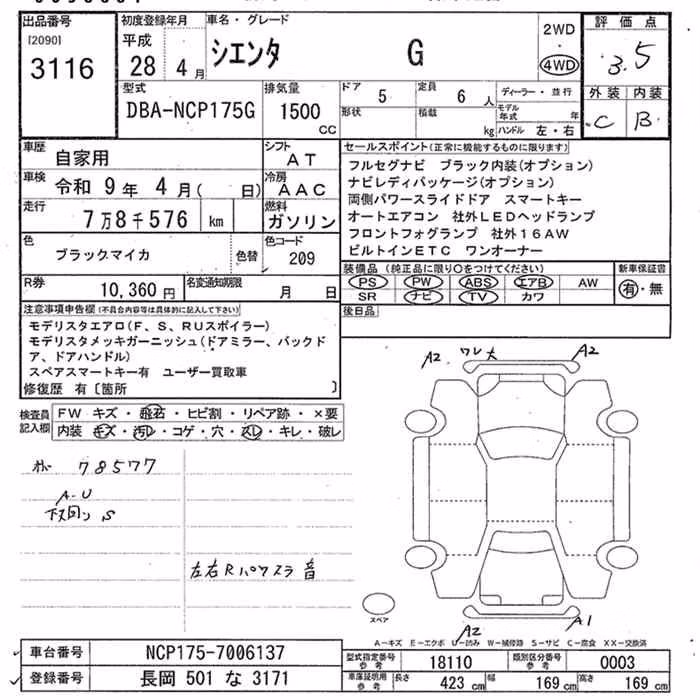 出品番号 初度登録年月 車名・グレード 評価点
[2090] 平成 2WD
3116 28 4月 シエンタ G 4WD 3.5
型式 排気量 ドア 定員 ディーラー・並行 外装 内装
DBA-NCP175G 1500 CC 5 6人 C B
形状 積載 kg モデル年式 年
ハンドル 左・右
車歴 自家用 シフト AT
車検 令和 9年 4月( 日) 冷房 AAC
走行 7万8千576 km 燃料 ガソリン
色 ブラックマイカ 色替 色コード 209
R券 10,360円 名変通知期限 月 日
セールスポイント(正常に機能するものに限ります)
フルセグナビ ブラック内装(オプション)
ナビレディパッケージ(オプション)
両側パワースライドドア スマートキー
オートエアコン 社外LEDヘッドランプ
フロントフォグランプ 社外16AW
ビルトインETC ワンオーナー
装備品 (純正品に限り○をつけてください) 新車保証書
PS PW ABS エアB AW 有・無
SR ナビ TV カワ
後日品
注意事項申告欄(不具合内容等は具体的に記入して下さい)
モデリスタエアロ(F、S、RUスポイラー)
モデリスタメッキガーニッシュ(ドアミラー、バックド
ア、ドアハンドル)
スペアスマートキー有 ユーザー買取車
修復歴 有〔箇所 〕
検査員記入欄 FW キズ・飛石・ヒビ割・リペア跡・×要
内装 キズ・汚レ・コゲ・穴・スレ・キレ・破レ
78577
A-U
S
左右Rパワスラ音
A2 ワレ大 A2
スペア
A2 A1
A-キズ E-エクボ U-凹み W-補修跡 S-サビ C-腐食 XX-交換済
車台番号 NCP175-7006137
登録番号 長岡 501 な 3171
型式指定番号 参考 18110 類別区分番号 参考 0003
車庫証明用 参考 長さ 423cm 幅 169cm 高さ 169cm